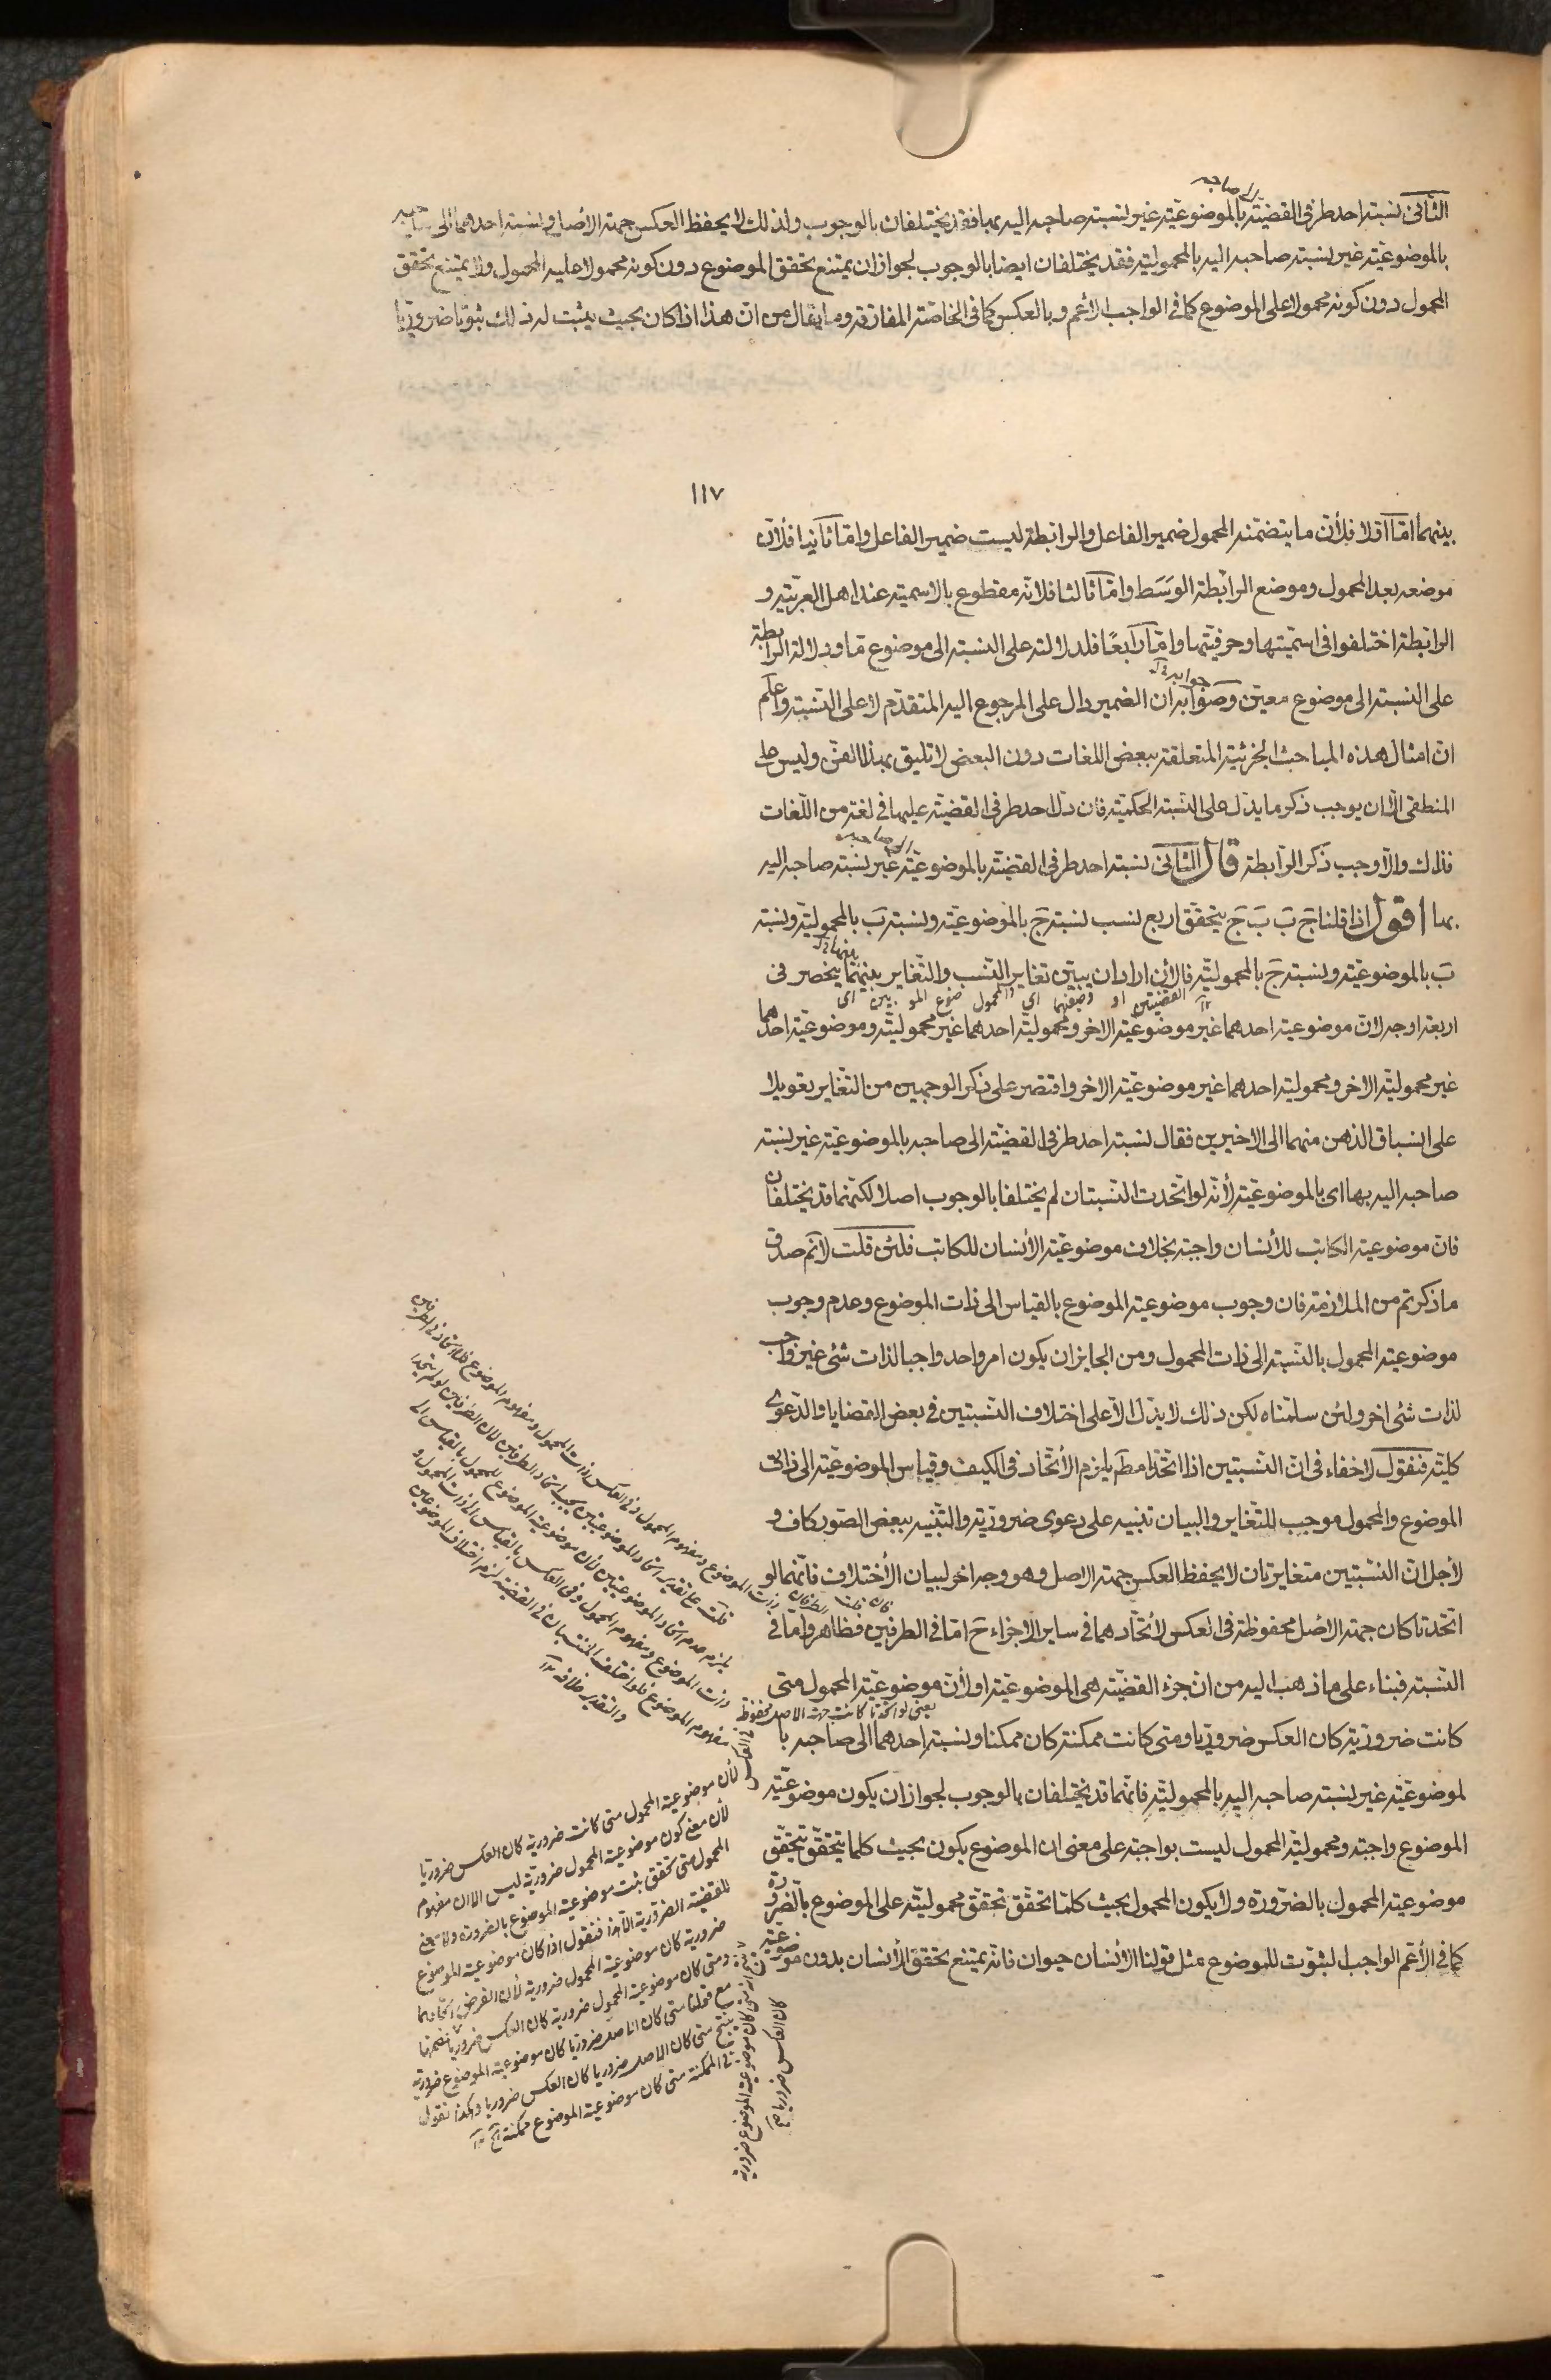 الى صاحبه
الثانى نسبة احد طرفى القضية بالموضوعية غير نسبة صاحبه اليه بها فقد يختلفان بالوجوب ولذلك لا يحفظ العكس جهة الأصل ونسبة احدهما الى صاحبه
بالموضوعية غير نسبة صاحبه اليه بالمحمولية فقد يختلفان ايضا بالوجوب لجواز ان يمتنع تحقق الموضوع دون كونه محمولا عليه المحمول ولا يمتنع تحقق
المحمول دون كونه محمولا على الموضوع كما فى الواجب الأعم وبالعكس كما فى الخاصة المفارقة وما يقال من ان هذا اذا كان بحيث يثبت له ذلك ثبوتا ضروريا
١١٧
بينهما امّا اوّلا فلأن ما يتضمنه المحمول ضمير الفاعل والرابطة ليست ضمير الفاعل وامّا ثانيا فلأن
موضعه بعد المحمول وموضع الرابطة الوَسَط وامّا ثالثا فلانه مقطوع بالاسمية عند اهل العربية و
الرابطة اختلفوا فى اسميّتها وحرفيّتها وامّا رابعًا فلدلالته على النسبة الى موضوع مّا ودلالة الرابطة
على النسبة الى موضوع معين وصوابه ان الضمير دال على المرجوع اليه المتقدم لا على النسبة واعلم
جوابه
ان امثال هذه المباحث الجزئية المتعلقة ببعض اللغات دون البعض لا تليق بهذا الفن وليس على
المنطقى الا ان يوجب ذكر ما يدل على النسبة الحكمية فان دل احد طرفى القضية عليها فى لغة من اللغات
فذاك والا وجب ذكر الرابطة قال الثانى نسبة احد طرفى القضية بالموضوعية غير نسبة صاحبه اليه
الى صاحبه
بها اقول اذا قلنا جَ بَ بَ جَ يتحقق اربع نسب نسبة جَ بالموضوعية ونسبة بَ بالمحمولية ونسبة
بَ بالموضوعية ونسبة جَ بالمحمولية فالآن اراد ان يبين تغاير النسب والتغاير بينهما ينحصر فى
بينها
اى بين الموضوع والمحمول اى وصفهما او القضيتين
اربعة اوجه لان موضوعية احدهما غير موضوعية الاخر ومحمولية احدهما غير محمولية وموضوعية احدهما
غير محمولية الاخر ومحمولية احدهما غير موضوعية الاخر واقتصر على ذكر الوجهين من التغاير تعويلا
على انسباق الذهن منهما الى الاخيرين فقال نسبة احد طرفى القضية الى صاحبه بالموضوعية غير نسبة
صاحبه اليه بها اى بالموضوعية لأنه لو اتحدت النسبتان لم يختلفا بالوجوب اصلا لكنهما قد يختلفان
فان موضوعية الكاتب للأنسان واجبة بخلاف موضوعية الأنسان للكاتب فلئن قلت لا نم صدق
ما ذكرتم من الملازمة فان وجوب موضوعية الموضوع بالقياس الى ذات الموضوع وعدم وجوب
موضوعية المحمول بالنسبة الى ذات المحمول ومن الجايز ان يكون امر واحد واجبا لذات شئ غير واجب
لذات شئ اخر ولئن سلمناه لكن ذلك لا يدل الا على اختلاف النسبتين فى بعض القضايا والدعوى
كلية فنقول لا خفاء فى ان النسبتين اذا اتحدتا مطم يلزم الأتحاد فى الكيف وقياس الموضوعية الى ذات
الموضوع والمحمول موجب للتغاير والبيان تنبيه على دعوى ضرورية والتنبيه ببعض الصور كاف و
لأجل ان النسبتين متغايرتان لا يحفظ العكس جهة الاصل وهو وجه اخر لبيان الأختلاف فانهما لو
اتحدتا كان جهة الأصل محفوظة فى العكس لأتحادهما فى ساير الاجزاء ح امّا فى الطرفين فظاهر وامّا فى
النسبة فبناء على ما ذهب اليه من ان جزء القضية هى الموضوعية اولأن موضوعية المحمول متى
يعنى لو اتحدتا كانت جهة الاصل محفوظة فى العكس
كانت ضرورية كان العكس ضروريا ومتى كانت ممكنة كان ممكنا ونسبة احدهما الى صاحبه با
لموضوعية غير نسبة صاحبه اليه بالمحمولية فانهما قد يختلفان بالوجوب لجواز ان يكون موضوعية
الموضوع واجبة ومحمولية المحمول ليست بواجبة على معنى ان الموضوع يكون بحيث كلما يتحقق تتحقق
موضوعية المحمول بالضرورة ولا يكون المحمول بحيث كلما تحقق تحقق محمولية على الموضوع بالضرورة
كما فى الأعم الواجب لثبوت للموضوع مثل قولنا الأنسان حيوان فانه يمتنع تحقق الأنسان بدون موضوعية
ذات الموضوع ومفهوم المحمول وفى العكس ذات المحمول ومفهوم الموضوع فلا اتحاد فى الطرفين
قلت على تقدير اتحاد الموضوعيتين يجب اتحاد الطرفين لان الطرفين لو لم يتحدا
يلزم عدم اتحاد الموضوعيتين لأن موضوعية الموضوع للمحمول بالقياس الى
ذات الموضوع ومفهوم المحمول وفى العكس بالقياس الى ذات المحمول و
مفهوم الموضوع فلو اختلف المنتسبان فى القضية لزم اختلاف الموضوعين
والتقدير خلافه
لأن موضوعية المحمول متى كانت ضرورية كان العكس ضروريا
لأن معنى كون موضوعية المحمول ضرورية ليس الا ان مفهوم
المحمول متى تحقق يثبت موضوعية الموضوع بالضرورة ولا معنى
للقضية الضرورية الا هذا فنقول اذا كان موضوعية الموضوع
ضرورية كان موضوعية المحمول ضرورية لأن الفرض اتحادهما
ومتى كان موضوعية المحمول ضرورية كان العكس ضروريا فنضمها
مع قولنا متى كان الاصل ضروريا كان موضوعية الموضوع ضرورية
ينتج متى كان الاصل ضروريا كان العكس ضروريا وهكذا نقول
فى الممكنة متى كان موضوعية الموضوع ممكنة
انه متى كان موضوعية الموضوع ضرورية
كان العكس ضروريا